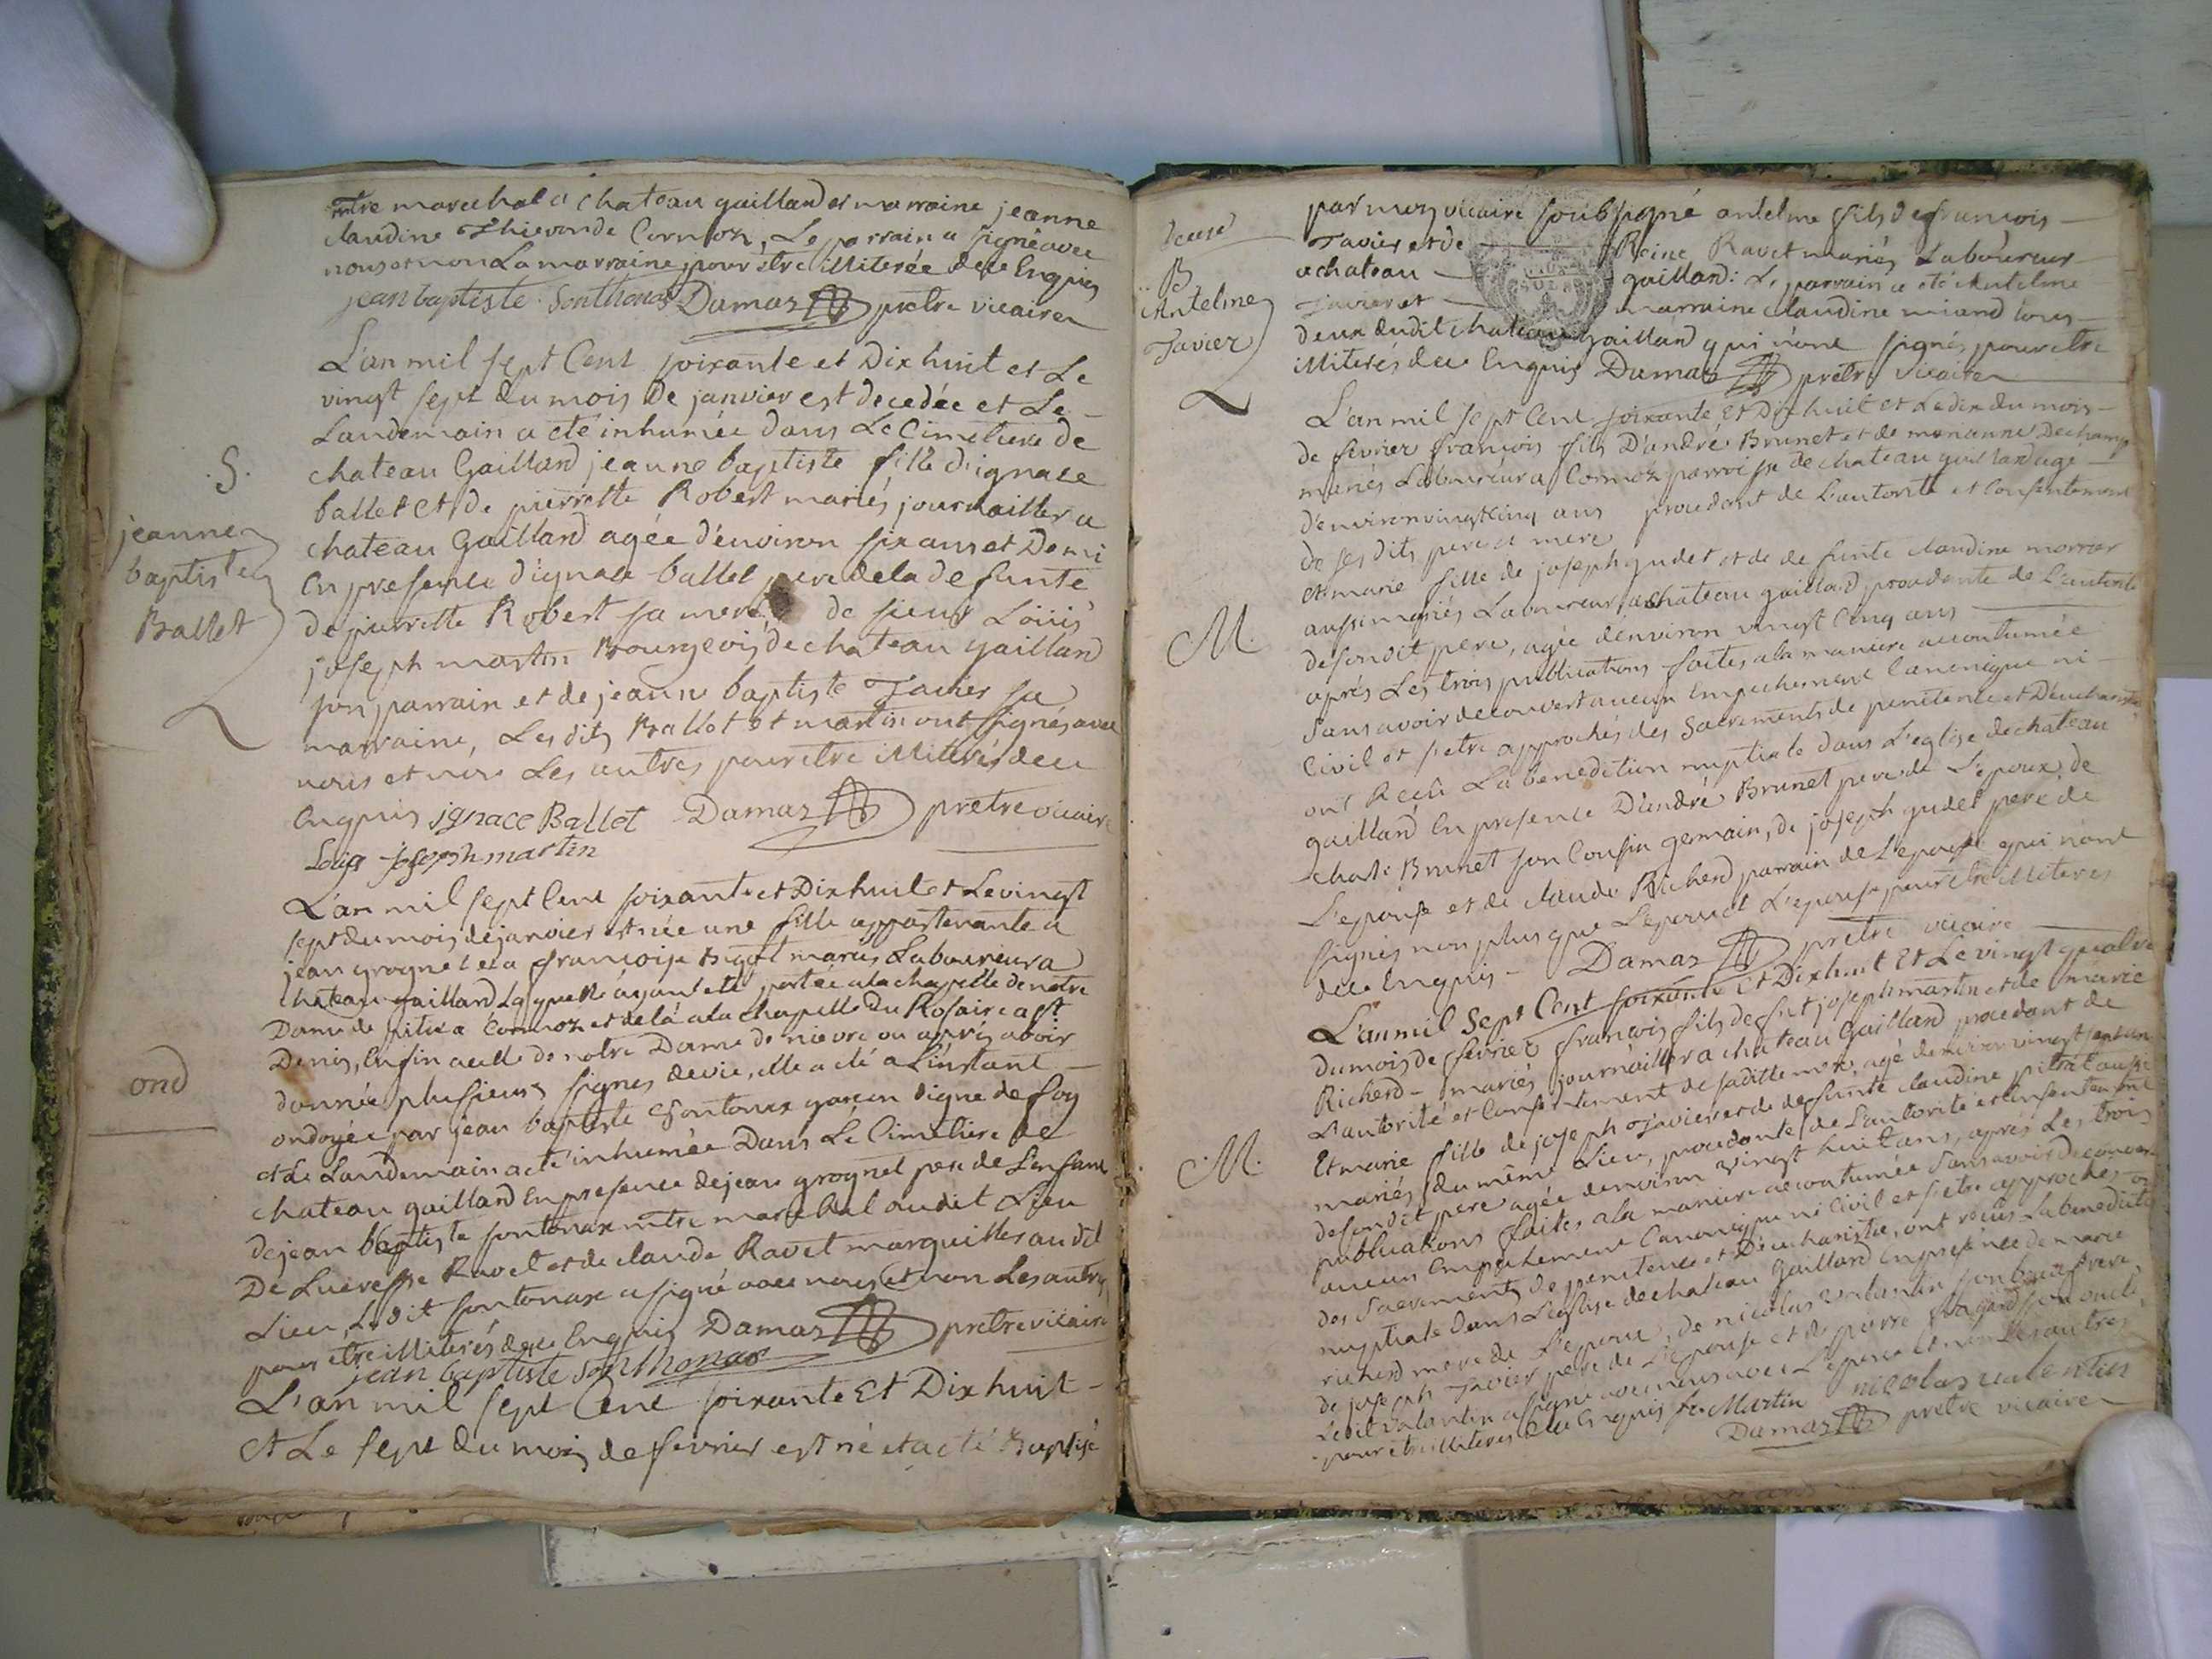 mtre marechal a chateau gaillard et marraine jeanne
claudine Thievon de Cormoz, Le parrain a signé avec
nous et non La marraine pour être illiterée de ce Enquis
jean baptiste Sonthonas Damaz prêtre vicaire
L'an mil sept Cent soixante et Dix huit et Le
vingt sept du mois De janvier est decedée et Le
Landemain a eté inhumée dans Le Cimetiere de
chateau Gaillard jeanne baptiste fille d'ignace
ballet et de pierrette Robert mariés journaillier a
chateau Gaillard agée d'environ six ans et Demi
En presence d'ignace ballet pere de la defunte
de pierrette Robert sa mere, de sieur Loüis
joseph martin Bourgeois de chateau gaillard
son parrain et de jeanne baptiste Javier sa
marraine, Les dits Ballet et martin ont signés avec
nous et non Les autres pour etre illiterés de ce
Enquis ignace Ballet Damaz prêtre vicaire
Louis joseph martin
L'an mil sept Cent soixante et Dix huit et Le vingt
sept du mois de janvier est née une fille appartenante a
jean grognet et a françoise Bigot mariés Laboureur a
Chateau gaillard Laquelle ayant eté portée a la chapelle de notre
Dame de pitié a Cormoz et de là a la chapelle Du Rosaire a st
Denis, Enfin a celle de notre Dame de nievre ou aprés avoir
donnée plusieurs signes de vie, elle a eté a L'instant
ondoyée par jean baptiste Sontonax garçon digne de foy
et Le Landemain a eté inhumée Dans Le Cimetiere de
chateau gaillard En presence de jean grognet pere de L'enfant
de jean baptiste sontonax mtre marechal audit Lieu
De Lucresse Ravet et de claude Ravet marguillier audit
Lieu, Ledit sontonax a signé avec nous et non Les autres
pour etre illiterés de ce Enquis Damaz prêtre vicaire
jean baptiste Sonthonas
L'an mil sept Cent soixante Et Dix huit
Et Le sept du mois de fevrier est né et a eté Baptisé
.S.
jeanne
baptiste
Ballet
ond
par moy vicaire soubsigné antelme fils de francois
Javier et de Reine Ravet mariés Laboureur
a chateau gaillard: Le parrain a eté Antelme
Javier et marraine claudine miand tous
deux dudit chateau gaillard qui n'ont signés pour etre
illiterés de ce Enquis Damaz prêtre vicaire
L'an mil sept Cent soixante Et Dix huit et Le dix du mois
de fevrier françois fils D'andré Brunet et de marianne Dechamp
mariés Laboureur a Cormoz parroisse de chateau gaillard agé
d'environ vingt cinq ans procedant de L'autorité et Consentement
de ses dits pere et mere
et marie fille de joseph gudet et de defunte claudine mornar
aussi mariés Laboureur a chateau gaillard procedante de L'autorité
de son dit pere, agée d'environ vingt Cinq ans
aprés Les trois publications faites a la maniere accoutumée
Sans avoir decouvert aucun Empechement Canonique ni
Civil et s'etre approchés des Sacrements de penitence et D'eucharistie
ont Reçû La benediction nuptiale dans L'eglise de chateau
gaillard En presence D'andré Brunet pere de L'epoux, de
charle Brunet son Cousin germain, de joseph gudet pere de
L'epouse et de claude Richerd parrain de L'epouse qui n'ont
signés non plus que L'epoux et L'epouse pour etre illiterés
de ce Enquis Damaz prêtre vicaire
L'an mil Sept Cent soixante Et Dix huit Et Le vingt quatre
du mois de fevrier françois fils de fut joseph martin et de marie
Richerd mariés journaillier a chateau Gaillard procedant de
L'autorité et Consentement de sa ditte mere, agé d'environ vingt sept ans
Et marie fille de joseph Javier et de defunte claudine pitrat aussi
mariés du même Lieu, procedante de L'autorité et Consentement
de son dit pere agée d'environ vingt huit ans, aprés Les trois
publications faites a la maniere accoutumée Sans avoir decouvert
aucun Empechement Canonique ni Civil et s'etre approchés
des Sacrements de penitence et D'eucharistie, ont reçûs La benediction
nuptiale Dans L'eglise de chateau Gaillard En presence de marie
richerd mere de L'epoux, de nicolas valantin son beau frere,
de joseph Javier pere de L'epouse et de pierre son oncle,
Ledit valantin a signé avec nous avec L'epoux et non Les autres
pour etre illiterés de ce Enquis fr. Martin nicolas valentin
Damaz prêtre vicaire
B
Antelme
Javier
M.
M.